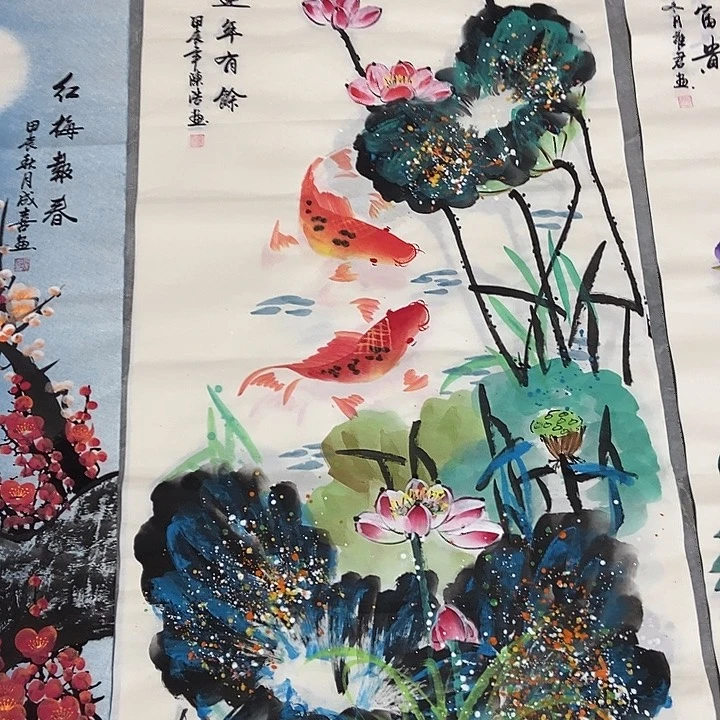 紅梅報春
甲辰秋月成喜畫
連年有餘
甲辰年陳浩畫
富貴
月雅君畫